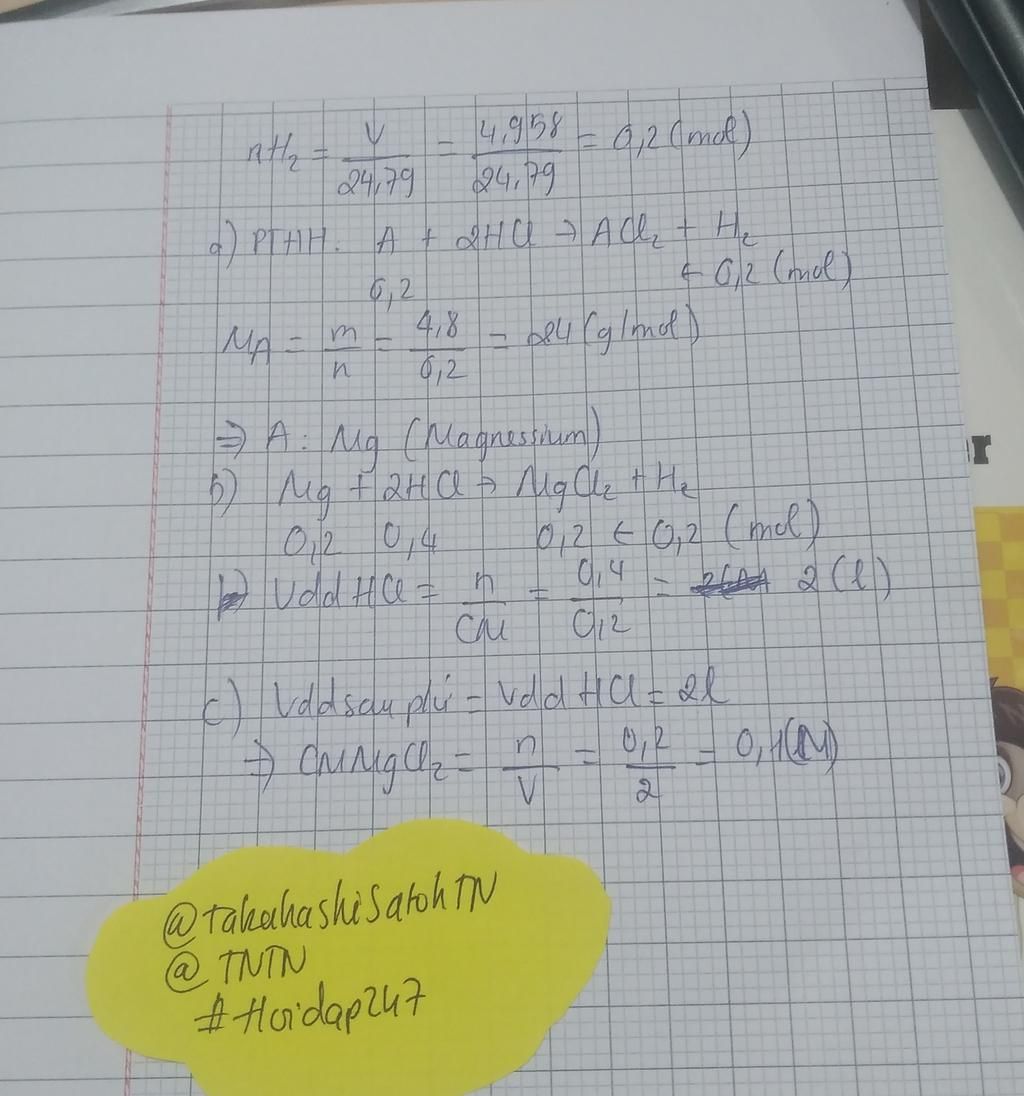 nH₂ = V/24,79 = 4,958/24,79 = 0,2 (mol)
a) PTHH: A + 2HCl → ACl₂ + H₂
0,2 ← 0,2 (mol)
MA = m/n = 4,8/0,2 = 24 (g/mol)
⇒ A: Mg (Magnessium)
b) Mg + 2HCl → MgCl₂ + H₂
0,2 0,4 0,2 ← 0,2 (mol)
Vdd HCl = n/CM = 0,4/0,2 = 2 (l)
c) Vdd sau pứ = Vdd HCl = 2l
⇒ CM MgCl₂ = n/V = 0,2/2 = 0,1 (M)
@takahashiSatohTN
@TNTN
#Hoidap247